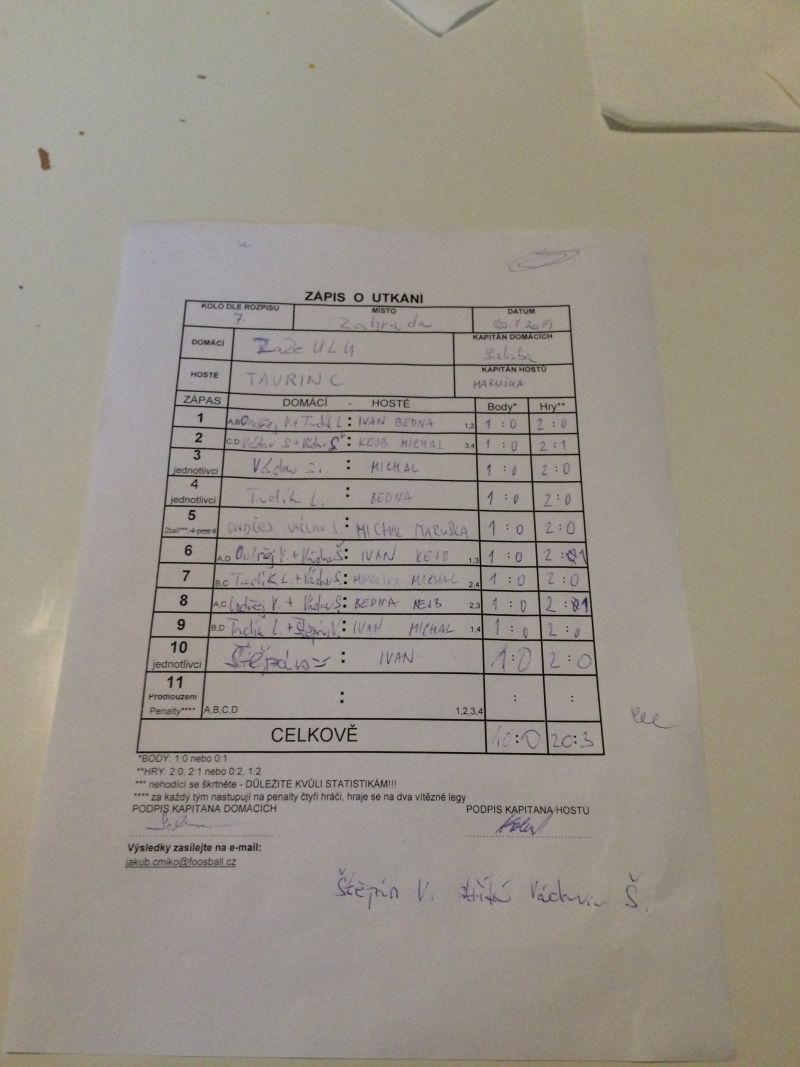 ZÁPIS O UTKÁNÍ
KOLO DLE ROZPISU MÍSTO DATUM
7. Zahrada 20.1.2019
DOMÁCÍ ULU KAPITÁN DOMÁCÍCH
HOSTÉ TAURIN C KAPITÁN HOSTŮ MARUŠKA
ZÁPAS DOMÁCÍ - HOSTÉ Body* Hry**
1 A,B Ondřej V.+ Trdík L. : IVAN BEDNA 1,2 1:0 2:0
2 C,D Václav S + Václav Š : KEJB MICHAL 3,4 1:0 2:1
3 jednotlivci Václav : MICHAL 1:0 2:0
4 jednotlivci Trdík L. : BEDNA 1:0 2:0
5 2ball***, 4 proti 4 ONDŘEJ VÁCLAV Š. : MICHAL MARUŠKA 1:0 2:0
6 A,D Ondřej V. + Václav Š : IVAN KEJB 1,3 1:0 2:1
7 B,C Trdík L. + Václav S. : MARUŠKA MICHAL 2,4 1:0 2:0
8 A,C Ondřej V. + Václav S. : BEDNA KEJB 2,3 1:0 2:1
9 B,D Trdík L. + Štěpán V. : IVAN MICHAL 1,4 1:0 2:0
10 jednotlivci : IVAN 1:0 2:0
11 Prodloužení Penalty**** A,B,C,D : 1,2,3,4 : :
CELKOVĚ 10:0 20:3
*BODY: 1:0 nebo 0:1
**HRY: 2:0, 2:1 nebo 0:2, 1:2
*** nehodící se škrtněte - DŮLEŽITÉ KVŮLI STATISTIKÁM!!!
**** za každý tým nastupují na penalty čtyři hráči, hraje se na dva vítězné legy
PODPIS KAPITÁNA DOMÁCÍCH PODPIS KAPITÁNA HOSTŮ
Výsledky zasílejte na e-mail:
jakub.cmiko@foosball.cz
Štěpán V. střídá Václava Š.